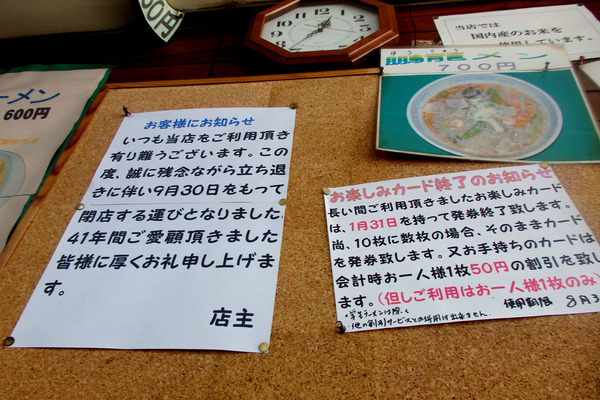 50円
当店では
国内産のお米を
使用しています
ーメン
600円
メン
700円
お客様にお知らせ
いつも当店をご利用頂き
有り難うございます。この
度、誠に残念ながら立ち退
きに伴い9月30日をもって
閉店する運びとなりました
41年間ご愛顧頂きました
皆様に厚くお礼申し上げま
す。
店主
お楽しみカード終了のお知らせ
長い間ご利用頂きましたお楽しみカード
は、1月31日を持って発券終了致します。
尚、10枚に数枚の場合、そのままカード
を発券致します。又お手持ちのカードは
会計時お一人様1枚50円の割引を致し
ます。(但しご利用はお一人様1枚のみ)
使用期限 8月3
・学生ラーメンは除く
・他の割引サービスとの併用は出来ません。
12
1
2
3
4
5
6
7
8
9
10
11